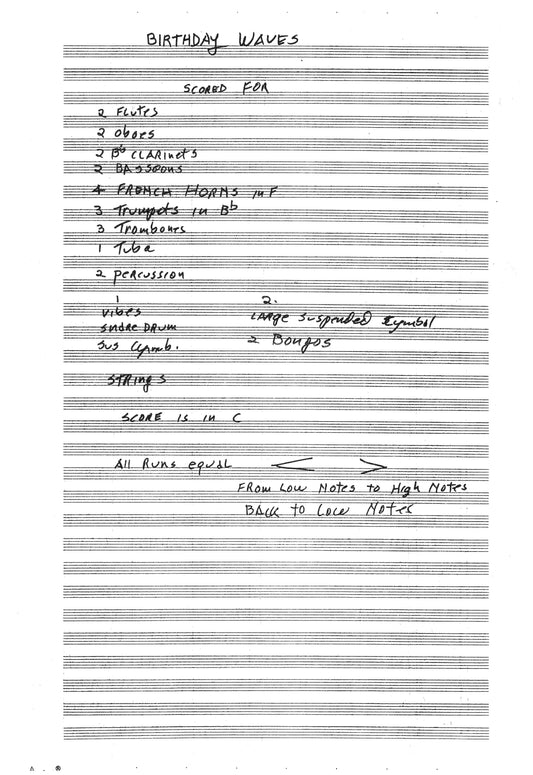 BIRTHDAY WAVES
SCORED FOR
2 Flutes
2 oboes
2 Bb CLARINETS
2 BASSOONS
4 FRENCH HORNS in F
3 Trumpets in Bb
3 Trombones
1 Tuba
2 percussion
1 2.
Vibes LARGE Suspended Cymbal
SNARE DRUM
Sus Cymb. 2 Bongos
STRINGS
SCORE IS IN C
All Runs equal < >
FROM Low Notes to High Notes
BACK TO Low Notes